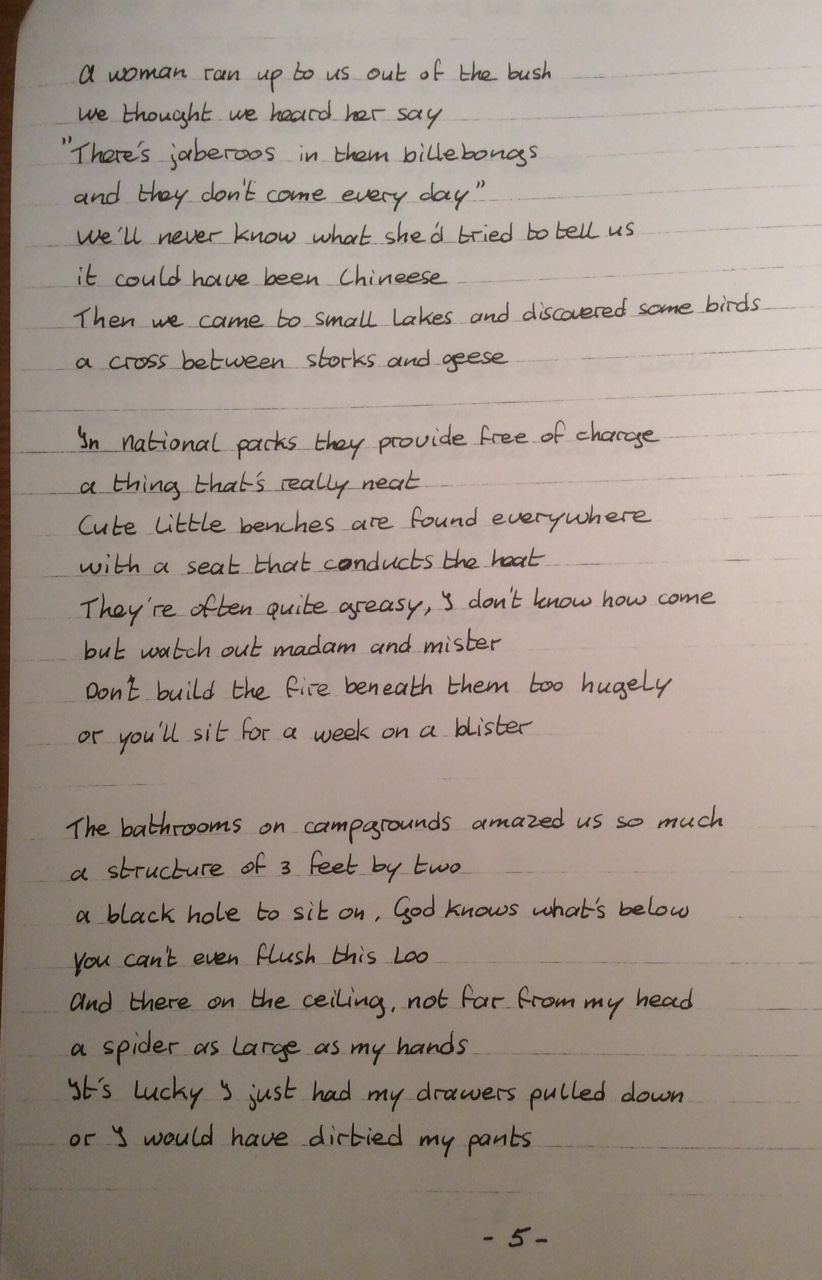 A woman ran up to us out of the bush
we thought we heard her say
"There's jaberoos in them billebongs
and they don't come every day"
We'll never know what she'd tried to tell us
it could have been Chineese
Then we came to small lakes and discovered some birds
a cross between storks and geese
In national parks they provide free of charge
a thing that's really neat
Cute little benches are found everywhere
with a seat that conducts the heat
They're often quite greasy, I don't know how come
but watch out madam and mister
Don't build the fire beneath them too hugely
or you'll sit for a week on a blister
The bathrooms on campgrounds amazed us so much
a structure of 3 feet by two
a black hole to sit on, God knows what's below
you can't even flush this loo
And there on the ceiling, not far from my head
a spider as large as my hands
It's lucky I just had my drawers pulled down
or I would have dirtied my pants
- 5 -